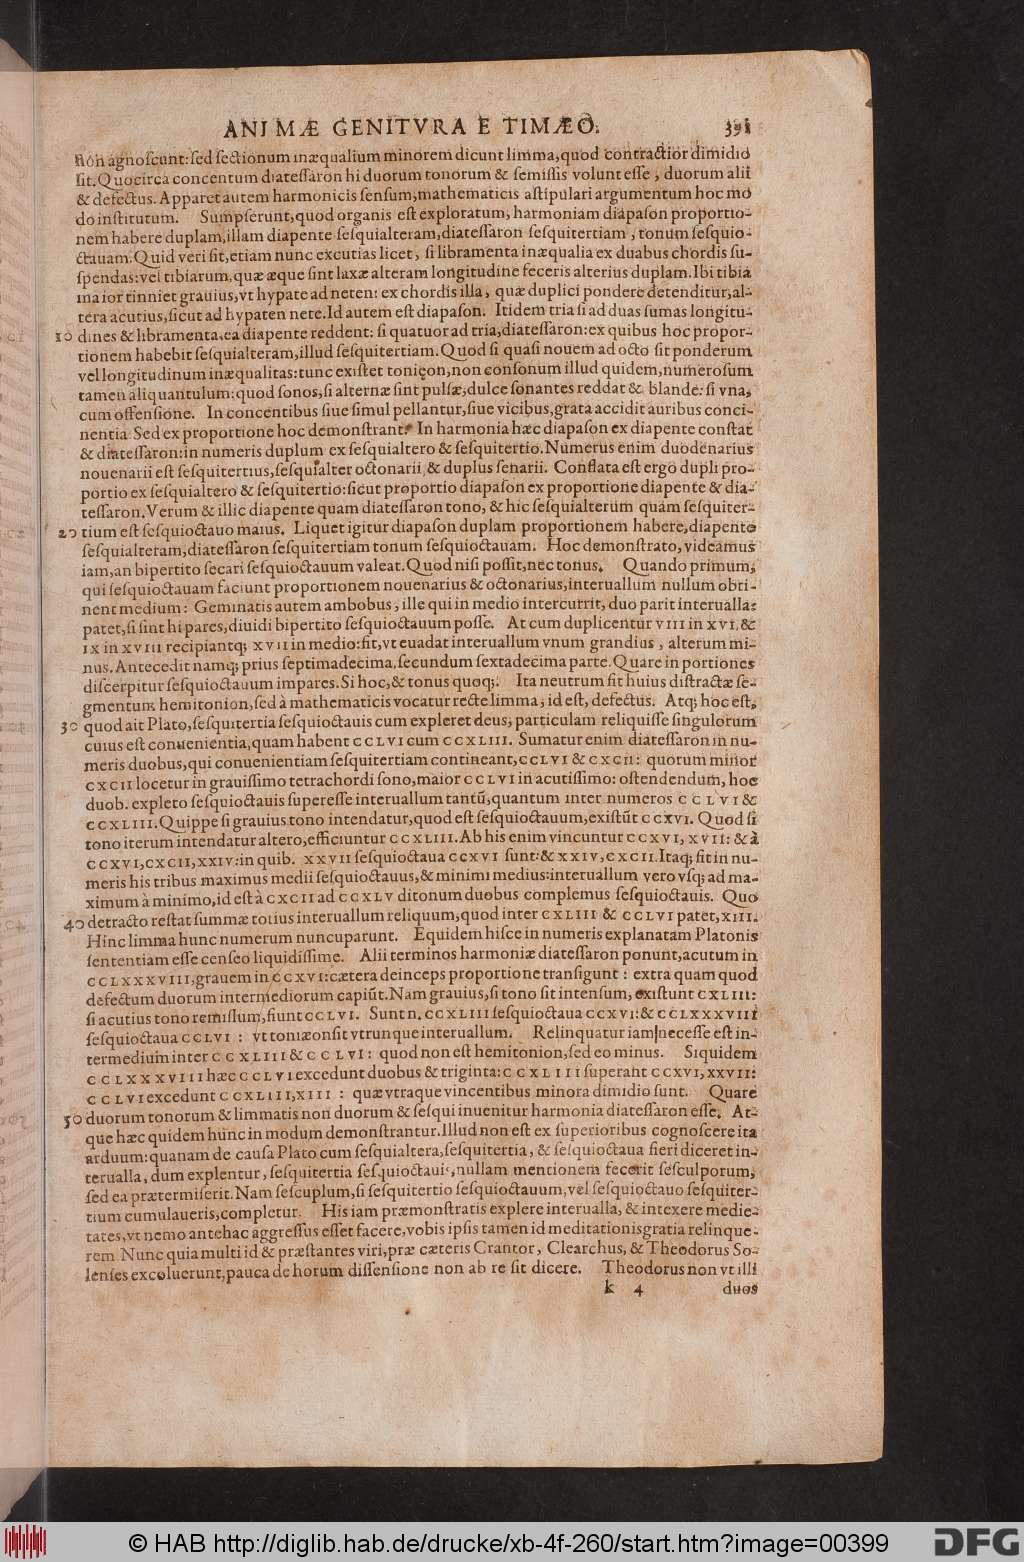 ANIMÆ GENITVRA E TIMÆO. 391
non agnoscunt: sed sectionum inæqualium minorem dicunt limma, quod contractior dimidio
sit. Quocirca concentum diatessaron hi duorum tonorum & semissis volunt esse, duorum alii
& defectus. Apparet autem harmonicis sensum, mathematicis astipulari argumentum hoc mo
do institutum. Sumpserunt, quod organis est exploratum, harmoniam diapason proportio-
nem habere duplam, illam diapente sesquialteram, diatessaron sesquitertiam, tonum sesquio-
ctauam. Quid veri sit, etiam nunc excutias licet, si libramenta inæqualia ex duabus chordis su-
spendas: vel tibiarum, quæ æque sint laxæ alteram longitudine feceris alterius duplam. Ibi tibia
maior tinniet grauius, vt hypate ad neten: ex chordis illa, quæ duplici pondere detenditur, al-
tera acutius, sicut ad hypaten nete. Id autem est diapason. Itidem tria si ad duas sumas longitu-
10 dines & libramenta, ea diapente reddent: si quatuor ad tria, diatessaron: ex quibus hoc propor-
tionem habebit sesquialteram, illud sesquitertiam. Quod si quasi nouem ad octo sit ponderum
vel longitudinum inæqualitas: tunc existet toniçon, non consonum illud quidem, numerosum
tamen aliquantulum: quod sonos, si alternæ sint pulsæ, dulce sonantes reddat & blande: si vna,
cum offensione. In concentibus siue simul pellantur, siue vicibus, grata accidit auribus conci-
nentia. Sed ex proportione hoc demonstrant. In harmonia hæc diapason ex diapente constat
& diatessaron: in numeris duplum ex sesquialtero & sesquitertio. Numerus enim duodenarius
nouenarii est sesquitertius, sesquialter octonarii, & duplus senarii. Conflata est ergo dupli pro-
portio ex sesquialtero & sesquitertio: sicut proportio diapason ex proportione diapente & dia-
tessaron. Verum & illic diapente quam diatessaron tono, & hic sesquialterum quam sesquiter-
20 tium est sesquioctauo maius. Liquet igitur diapason duplam proportionem habere, diapente
sesquialteram, diatessaron sesquitertiam tonum sesquioctauam. Hoc demonstrato, videamus
iam, an bipertito secari sesquioctauum valeat. Quod nisi possit, nec tonus. Quando primum,
qui sesquioctauam faciunt proportionem nouenarius & octonarius, interuallum nullum obti-
nent medium: Geminatis autem ambobus, ille qui in medio intercurrit, duo parit interualla:
patet, si sint hi pares, diuidi bipertito sesquioctauum posse. At cum duplicentur VIII in XVI, &
IX in XVIII recipiantq; XVII in medio: fit, vt euadat interuallum vnum grandius, alterum mi-
nus. Antecedit namq; prius septimadecima, secundum sextadecima parte. Quare in portiones
discerpitur sesquioctauum impares. Si hoc, & tonus quoq;. Ita neutrum fit huius distractæ se-
gmentum hemitonion, sed à mathematicis vocatur recte limma, id est, defectus. Atq; hoc est,
30 quod ait Plato, sesquitertia sesquioctauis cum expleret deus, particulam reliquisse singulorum
cuius est conuenientia, quam habent CCLVI cum CCXLIII. Sumatur enim diatessaron in nu-
meris duobus, qui conuenientiam sesquitertiam contineant, CCLVI & CXCII: quorum minor
CXCII locetur in grauissimo tetrachordi sono, maior CCLVI in acutissimo: ostendendum, hoc
duob. expleto sesquioctauis superesse interuallum tantũ, quantum inter numeros CCLVI &
CCXLIII. Quippe si grauius tono intendatur, quod est sesquioctauum, existũt CCXVI. Quod si
tono iterum intendatur altero, efficiuntur CCXLIII. Ab his enim vincuntur CCXVI, XVII: & à
CCXVI, CXCII, XXIV: in quib. XXVII sesquioctaua CCXVI sunt: & XXIV, CXCII. Itaq; fit in nu-
meris his tribus maximus medii sesquioctauus, & minimi medius: interuallum vero vsq; ad ma-
ximum à minimo, id est à CXCII ad CCXLV ditonum duobus complemus sesquioctauis. Quo
40 detracto restat summæ totius interuallum reliquum, quod inter CXLIII & CCLVI patet, XIII.
Hinc limma hunc numerum nuncuparunt. Equidem hisce in numeris explanatam Platonis
sententiam esse censeo liquidissime. Alii terminos harmoniæ diatessaron ponunt, acutum in
CCLXXXVIII, grauem in CCXVI: cætera deinceps proportione transigunt: extra quam quod
defectum duorum intermediorum capiũt. Nam grauius, si tono sit intensum, existunt CXLIII:
si acutius tono remissum, fiunt CCLVI. Sunt n. CCXLIII sesquioctaua CCXVI: & CCLXXXVIII
sesquioctaua CCLVI: vt toniæon sit vtrunque interuallum. Relinquatur iam necesse est in-
termedium inter CCXLIII & CCLVI: quod non est hemitonion, sed eo minus. Siquidem
CCLXXXVIII hæc CCLVI excedunt duobus & triginta: CCXLIII superant CCXVI, XXVII:
CCLVI excedunt CCXLIII, XIII: quæ vtraque vincentibus minora dimidio sunt. Quare
50 duorum tonorum & limmatis non duorum & sesqui inuenitur harmonia diatessaron esse. At-
que hæc quidem hunc in modum demonstrantur. Illud non est ex superioribus cognoscere ita
arduum: quanam de causa Plato cum sesquialtera, sesquitertia, & sesquioctaua fieri diceret in-
terualla, dum explentur, sesquitertia sesquioctauis, nullam mentionem fecerit sesculporum,
sed ea prætermiserit. Nam sescuplum, si sesquitertio sesquioctauum, vel sesquioctauo sesquiter-
tium cumulaueris, completur. His iam præmonstratis explere interualla, & intexere medie-
tates, vt nemo antehac aggressus esset facere, vobis ipsis tamen id meditationis gratia relinque-
rem. Nunc quia multi id & præstantes viri, præ cæteris Crantor, Clearchus, & Theodorus So-
lenses excoluerunt, pauca de horum dissensione non ab re sit dicere. Theodorus non vt illi
k 4 duos
© HAB http://diglib.hab.de/drucke/xb-4f-260/start.htm?image=00399 DFG